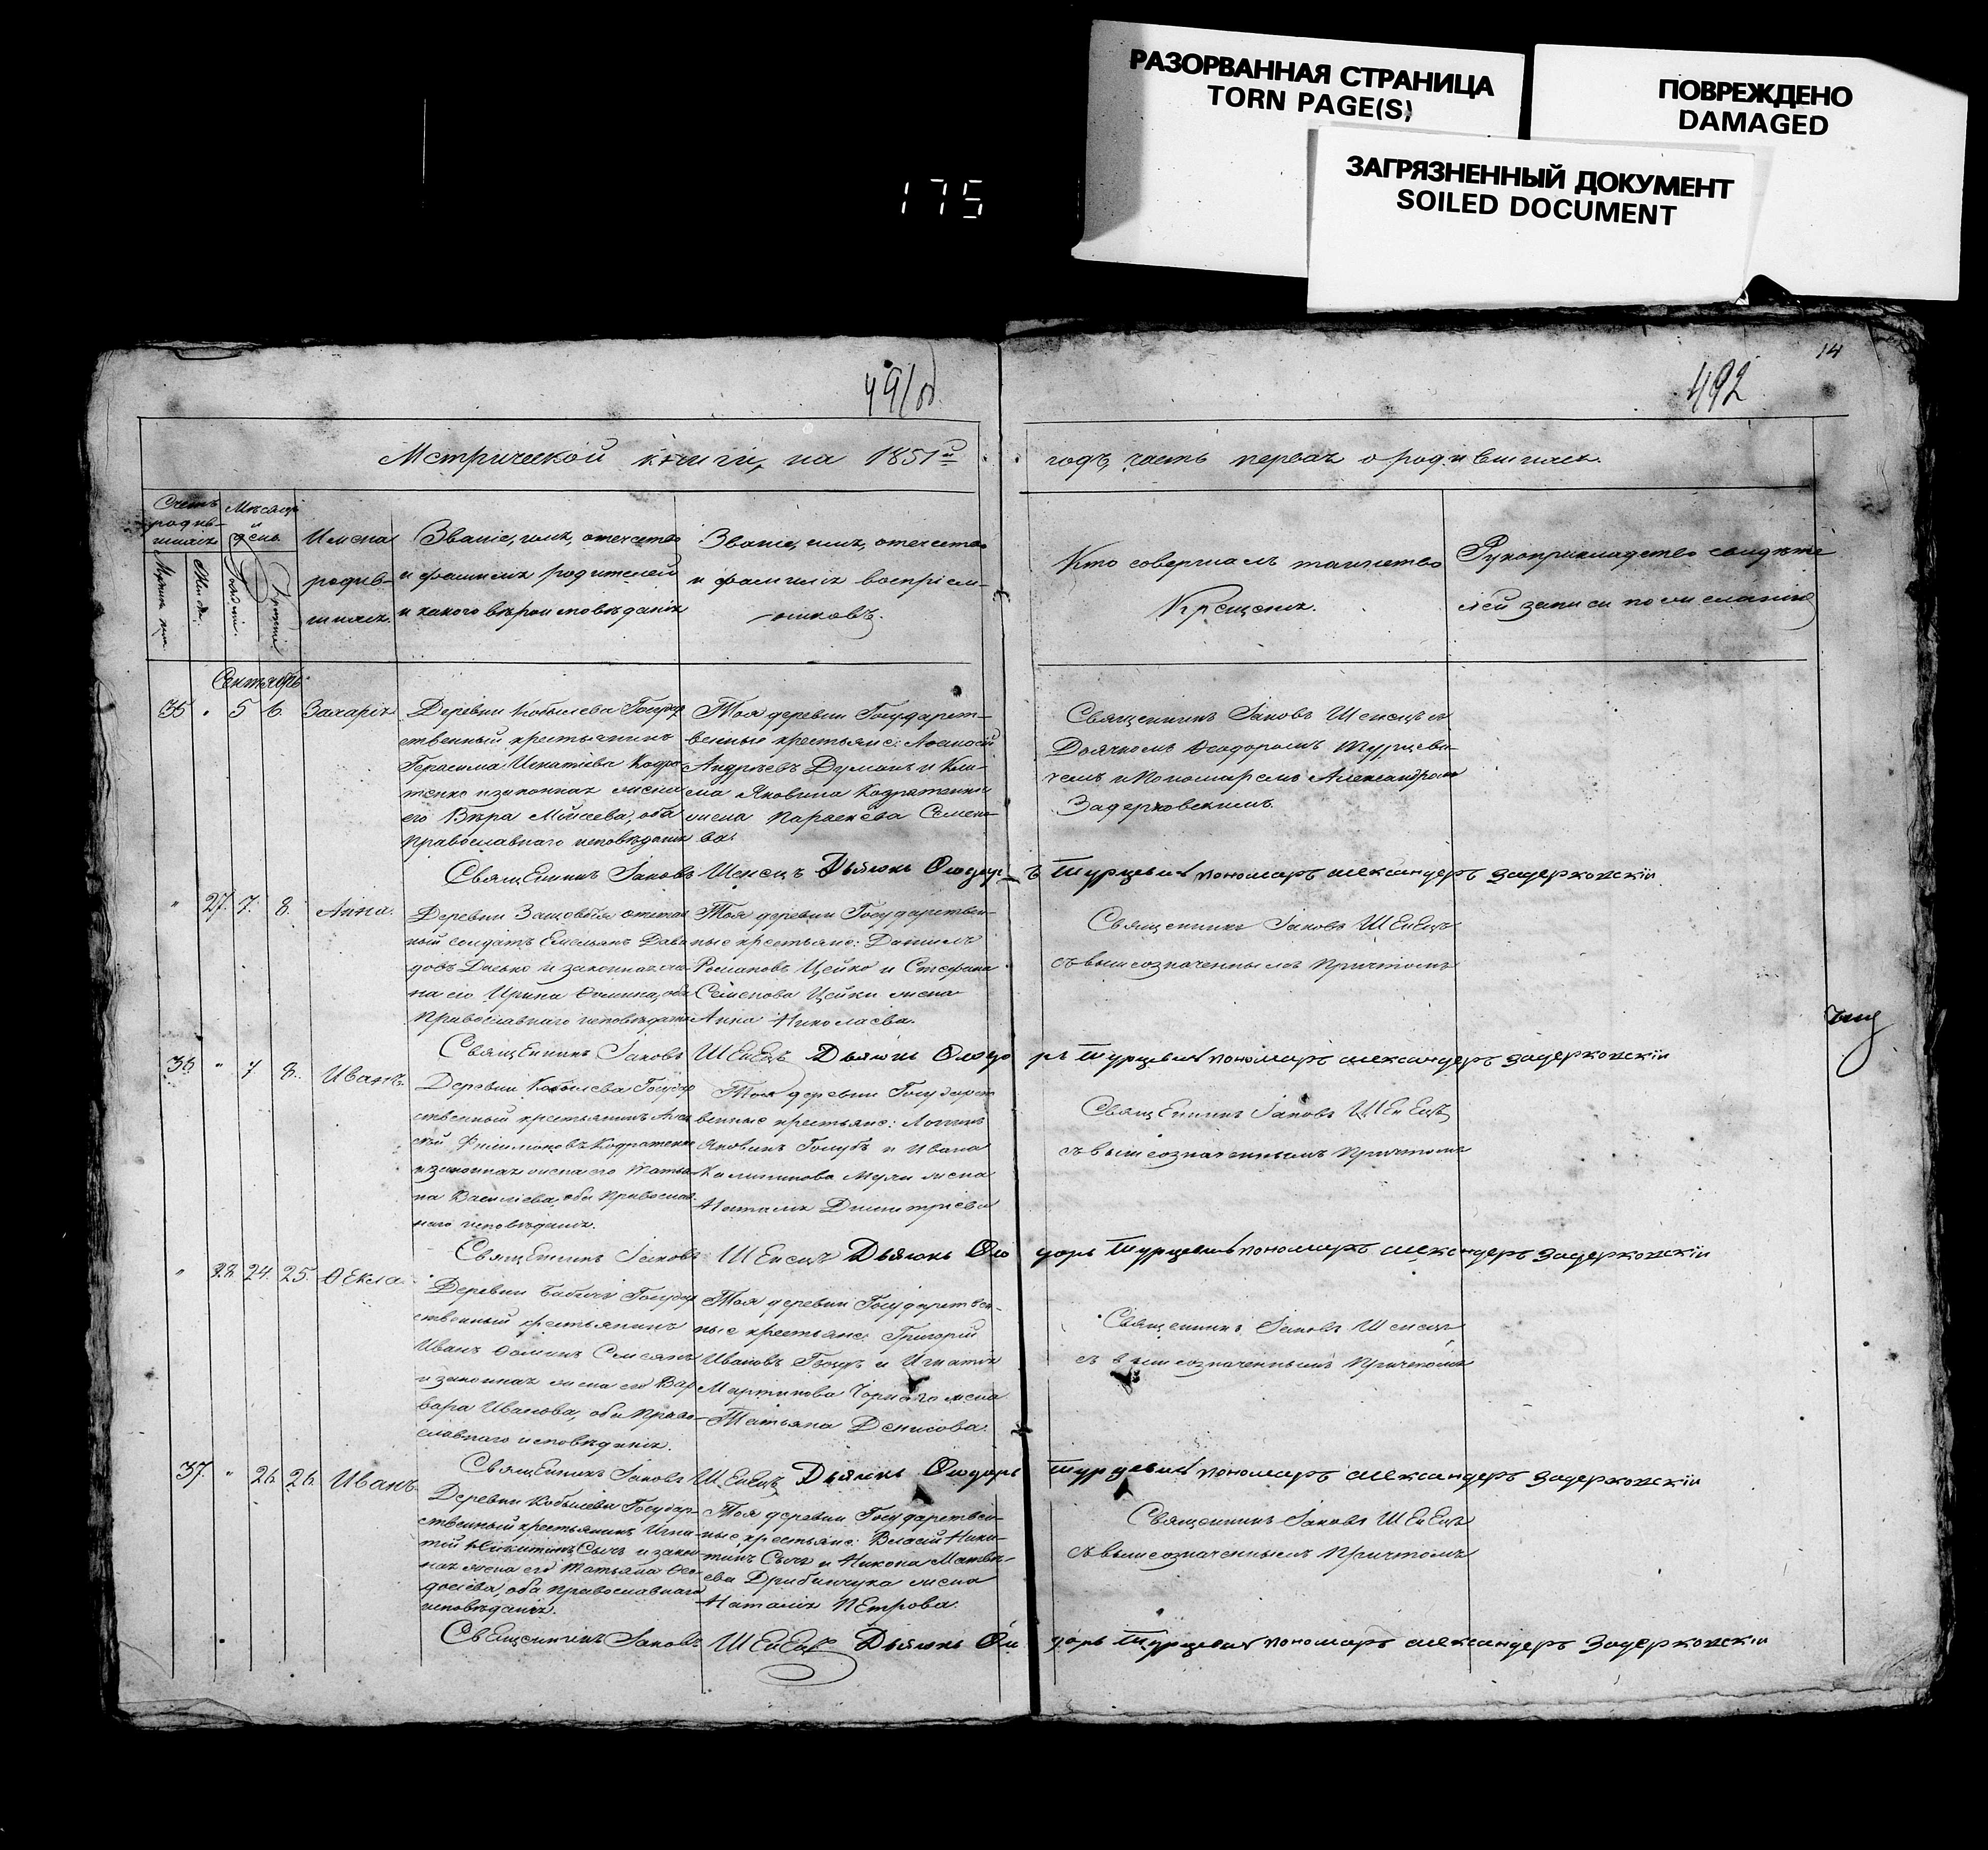 РАЗОРВАННАЯ СТРАНИЦА
TORN PAGE(S)
ПОВРЕЖДЕНО
DAMAGED
ЗАГРЯЗНЕННЫЙ ДОКУМЕНТ
SOILED DOCUMENT
175
14
491об
492
Метрической книги, на 1851й
годъ, часть первая о родившихся.
Счетъ родив-шихся
Мѣсяцъ и день
Имена родив-шихся.
Званіе, имя, отечество
и фамилія родителей
и какого вѣроисповѣданія
Званіе, имя, отечество
и фамилія воспріем-
никовъ.
Кто совершалъ таинство
Крещенія.
Рукоприкладство свидѣте
лей записи по желанію
Сентябрь
35 " 5 6. Захарія
Деревни Кобылева Государ
ственный крестьянинъ
Герасима Игнатіева Кодра
тенко и законная жена
его Вѣра Мойсеева, оба
православнаго исповѣданія
Тоя деревни Государст-
венные крестьяне: Афанасій
Андреевъ Думанъ и Кли-
ма Яковина Кодратенки
жена Параскева Семено-
ва.
Священникъ Іаковъ Шенецъ съ
Дьячкомъ Феодоромъ Турцеви-
чемъ и Пономаремъ Александромъ
Задерковскимъ.
Священникъ Іаковъ Шенецъ Дьячокъ Ѳеодоръ Турцевич пономаръ александеръ Задерковскій
" 27. 7. 8. Анна.
Деревни отстав
ный солдатъ Емельянъ Давы
довъ и законная же-
на его Ирина Фомина, оба
Православнаго исповѣданія
Тоя деревни Государствен-
ные крестьяне: Даниилъ
Романовъ Цейко и Стефана
Семенова Цейки жена
Анна Николаева.
Священникъ Іаковъ Шенецъ
съ вышеозначеннымъ Причтомъ
Священникъ Іаковъ Шенецъ Дьячокъ Ѳеодоръ Турцевич пономаръ александеръ Задерковскій
36 " 7 8. Иванъ
Деревни Кобылева Государ
ственный крестьянинъ Алек
сѣй Филимоновъ Кодратенко
и законная жена его Татья-
на Василіева, оба Православ-
наго исповѣданія.
Тоя деревни Государст
венные крестьяне: Логинъ
Яковинъ Голубъ и Ивана
Калиникова жена
Наталія Димитріева
Священникъ Іаковъ Шенецъ
съ вышеозначеннымъ Причтомъ
Священникъ Іаковъ Шенецъ Дьячокъ Ѳеодоръ Турцевич пономаръ александеръ Задерковскій
" 28 24. 25. Ѳекла.
Деревни Бабичи Государ
ственный крестьянинъ
Иванъ Фоминъ
и законная жена его Вар
вара Иванова, оба Право-
славнаго исповѣданія.
Тоя деревни Государствен-
ные крестьяне: Григорій
Ивановъ и Игнатія
Мартинова Чорнаго жена
Татьяна Денисова.
Священникъ Іаковъ Шенецъ
съ вышеозначеннымъ Причтомъ
Священникъ Іаковъ Шенецъ Дьячокъ Ѳеодоръ Турцевич пономаръ александеръ Задерковскій
37. " 26 26. Иванъ.
Деревни Кобылева Государ-
ственный крестьянинъ Игна-
тій Никитинъ Сычъ и закон-
ная жена его Татьяна Фео-
досіева, оба православнаго
исповѣданія.
Тоя деревни Государствен-
ные крестьяне: Власій Ники-
тинъ Сычъ и Никона Матвѣ-
ева Дрибинчука жена
Наталія Петрова.
Священникъ Іаковъ Шенецъ
съ вышеозначеннымъ Причтомъ
Священникъ Іаковъ Шенецъ Дьячокъ Ѳеодоръ Турцевич пономаръ александеръ Задерковскій